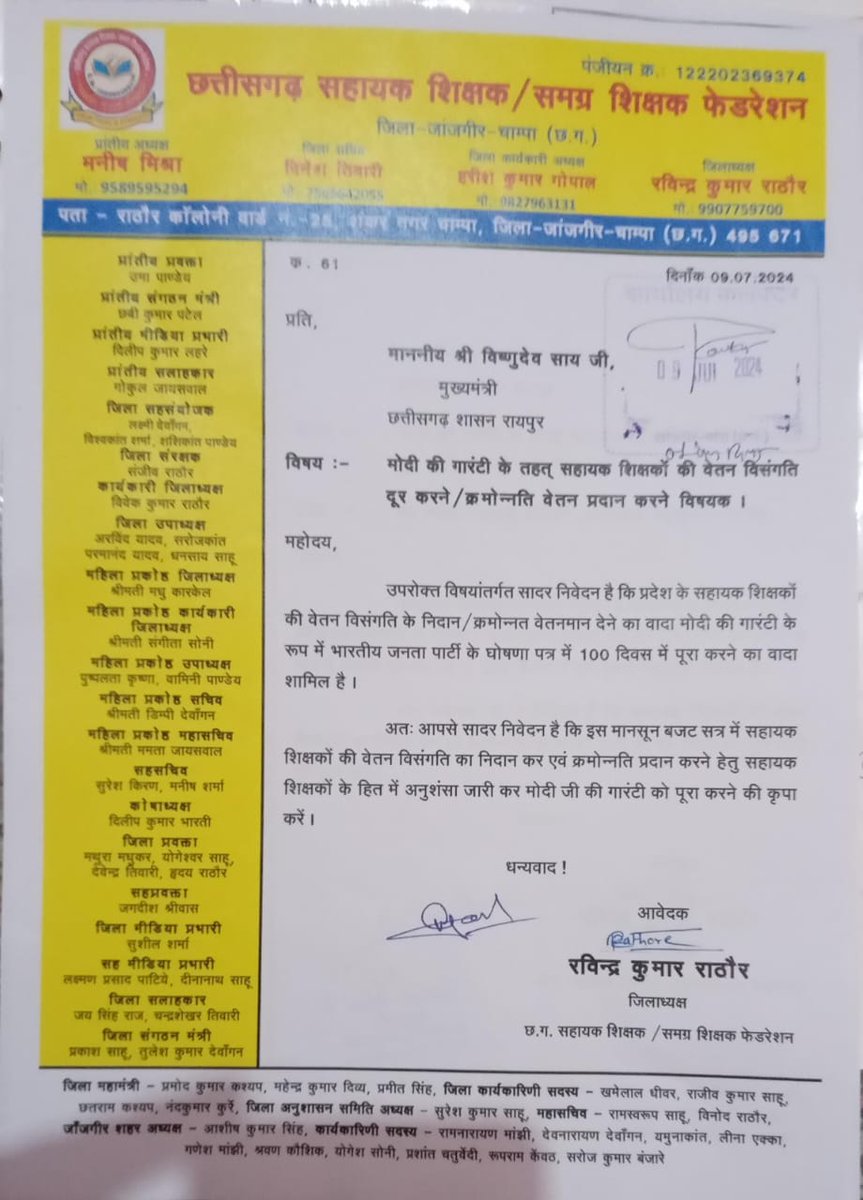 पंजीयन क्र. 122202369374
छत्तीसगढ़ सहायक शिक्षक/समग्र शिक्षक फेडरेशन
जिला-जांजगीर-चाम्पा (छ.ग.)
प्रांतीय अध्यक्ष
मनीष मिश्रा
मो. 9589595294
जिला सचिव
विनेश तिवारी
जिला कार्यकारी अध्यक्ष
हरीश कुमार गोपाल
मो. 9827963131
जिलाध्यक्ष
रविन्द्र कुमार राठौर
मो. 9907759700
पता - राठौर कॉलोनी वार्ड नं.-25, शंकर नगर चाम्पा, जिला-जांजगीर-चाम्पा (छ.ग.) 495 671
प्रांतीय प्रवक्ता
उमा पाण्डेय
प्रांतीय संगठन मंत्री
छबी कुमार पटेल
प्रांतीय मीडिया प्रभारी
दिलीप कुमार लहरे
प्रांतीय सलाहकार
गोकुल जायसवाल
जिला सहसंयोजक
लक्ष्मी देवाँगन,
विश्वकांत शर्मा, शशिकांत पाण्डेय
जिला संरक्षक
संजीव राठौर
कार्यकारी जिलाध्यक्ष
विवेक कुमार राठौर
जिला उपाध्यक्ष
अरविंद यादव, सरोजकांत
परमानंद यादव, धनसाय साहू
महिला प्रकोष्ठ जिलाध्यक्ष
श्रीमती मधु कारकेल
महिला प्रकोष्ठ कार्यकारी
जिलाध्यक्ष
श्रीमती संगीता सोनी
महिला प्रकोष्ठ उपाध्यक्ष
पुष्पलता कृष्णा, यामिनी पाण्डेय
महिला प्रकोष्ठ सचिव
श्रीमती डिम्पी देवाँगन
महिला प्रकोष्ठ महासचिव
श्रीमती ममता जायसवाल
सहसचिव
सुरेश किरण, मनीष शर्मा
कोषाध्यक्ष
दिलीप कुमार भारती
जिला प्रवक्ता
मथुरा मधुकर, योगेश्वर साहू,
देवेन्द्र तिवारी, हृदय राठौर
सहप्रवक्ता
जगदीश श्रीवास
जिला मीडिया प्रभारी
सुशील शर्मा
सह मीडिया प्रभारी
लक्ष्मण प्रसाद पाटिये, दीनानाथ साहू
जिला सलाहकार
जय सिंह राज, चन्द्रशेखर तिवारी
जिला संगठन मंत्री
प्रकाश साहू, तुलेश कुमार देवाँगन
क. 61
दिनाँक 09.07.2024
प्रति,
09 JUL 2024
माननीय श्री विष्णुदेव साय जी,
मुख्यमंत्री
छत्तीसगढ़ शासन रायपुर
विषय :- मोदी की गारंटी के तहत् सहायक शिक्षकों की वेतन विसंगति
दूर करने/क्रमोन्नति वेतन प्रदान करने विषयक ।
महोदय,
उपरोक्त विषयांतर्गत सादर निवेदन है कि प्रदेश के सहायक शिक्षकों
की वेतन विसंगति के निदान/क्रमोन्नत वेतनमान देने का वादा मोदी की गारंटी के
रूप में भारतीय जनता पार्टी के घोषणा पत्र में 100 दिवस में पूरा करने का वादा
शामिल है ।
अतः आपसे सादर निवेदन है कि इस मानसून बजट सत्र में सहायक
शिक्षकों की वेतन विसंगति का निदान कर एवं क्रमोन्नति प्रदान करने हेतु सहायक
शिक्षकों के हित में अनुशंसा जारी कर मोदी जी की गारंटी को पूरा करने की कृपा
करें ।
धन्यवाद !
आवेदक
Rathore
रविन्द्र कुमार राठौर
जिलाध्यक्ष
छ.ग. सहायक शिक्षक /समग्र शिक्षक फेडरेशन
जिला महामंत्री - प्रमोद कुमार कश्यप, महेन्द्र कुमार दिव्य, प्रमीत सिंह, जिला कार्यकारिणी सदस्य - खमेलाल धीवर, राजीव कुमार साहू,
छतराम कश्यप, नंदकुमार कुर्रे, जिला अनुशासन समिति अध्यक्ष - सुरेश कुमार साहू, महासचिव - रामस्वरूप साहू, विनोद राठौर,
जाँजगीर शहर अध्यक्ष - आशीष कुमार सिंह, कार्यकारिणी सदस्य - रामनारायण मांझी, देवनारायण देवाँगन, यमुनाकांत, लीना एक्का,
गणेश मांझी, श्रवण कौशिक, योगेश सोनी, प्रशांत चतुर्वेदी, रूपराम केंवठ, सरोज कुमार बंजारे